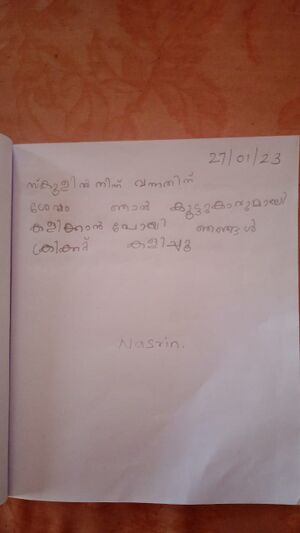 27/01/23
സ്കൂളിൽ നിന്ന് വന്നതിന്
ശേഷം ഞാൻ കൂട്ടുകാരുമായി
കളിക്കാൻ പോയി ഞങ്ങൾ
ക്രിക്കറ്റ് കളിച്ചു
Nasrin.